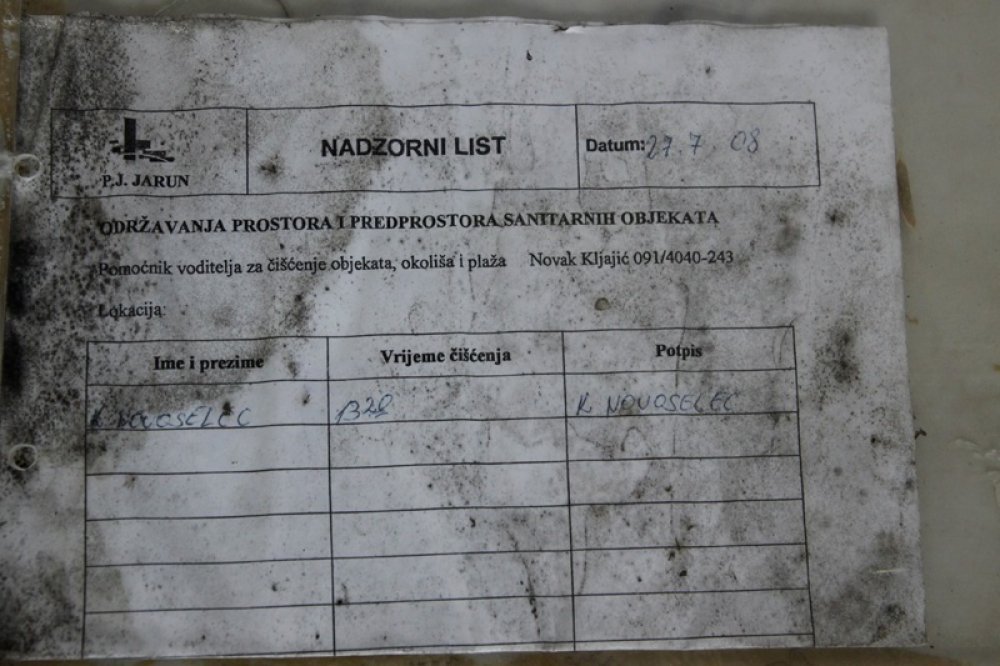 NADZORNI LIST
Datum: 27 7 08
P.J. JARUN
ODRŽAVANJA PROSTORA I PREDPROSTORA SANITARNIH OBJEKATA
Pomoćnik voditelja za čišćenje objekata, okoliša i plaža Novak Kljajić 091/4040-243
Lokacija:
Ime i prezime Vrijeme čišćenja Potpis
K NOVOSELEC 1320 K NOVOSELEC